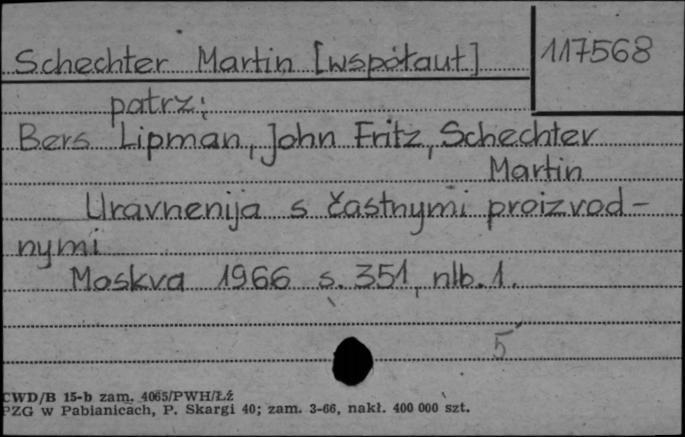 Schechter Martin [współaut.]
117568
patrz:
Bers Lipman, John Fritz, Schechter
Martin
Uravnenija s častnymi proizvod-
nymi
Moskva 1966 s. 351, nlb. 1.
5
CWD/B 15-b zam. 4065/PWH/Łź
PZG w Pabianicach, P. Skargi 40; zam. 3-66, nakł. 400 000 szt.